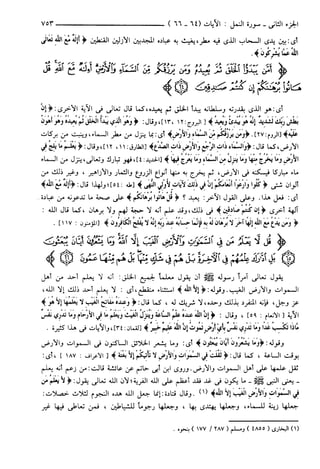 الجزء الثاني ـ سورة النمل : الآيات (٦٤ ـ ٦٦) ٧٥٣
أي: بين يدي السحاب الذي فيه مطر، يغيث به عباده المجدبين الأزلين القنطين ﴿ أَإِلَٰهٌ مَّعَ اللَّهِ تَعَالَى
اللَّهُ عَمَّا يُشْرِكُونَ ﴾ .
أَمَّن يَبْدَأُ الْخَلْقَ ثُمَّ يُعِيدُهُ وَمَن يَرْزُقُكُم مِّنَ السَّمَاءِ وَالْأَرْضِ أَإِلَٰهٌ مَّعَ اللَّهِ قُلْ هَاتُوا
بُرْهَانَكُمْ إِن كُنتُمْ صَادِقِينَ
أي: هو الذي بقدرته وسلطانه يبدأ الخلق ثم يعيده، كما قال تعالى في الآية الأخرى: ﴿ إِنَّ
بَطْشَ رَبِّكَ لَشَدِيدٌ إِنَّهُ هُوَ يُبْدِئُ وَيُعِيدُ ﴾ [البروج: ١٢، ١٣]، وقال: ﴿ وَهُوَ الَّذِي يَبْدَأُ الْخَلْقَ ثُمَّ يُعِيدُهُ وَهُوَ أَهْوَنُ
عَلَيْهِ ﴾ [الروم: ٢٧]. ﴿ وَمَن يَرْزُقُكُم مِّنَ السَّمَاءِ وَالْأَرْضِ ﴾ أي: بما ينزل من مطر السماء، وينبت من بركات
الأرض، كما قال: ﴿ وَالسَّمَاءِ ذَاتِ الرَّجْعِ وَالْأَرْضِ ذَاتِ الصَّدْعِ ﴾ [الطارق: ١١، ١٢]، وقال: ﴿ يَعْلَمُ مَا يَلِجُ فِي
الْأَرْضِ وَمَا يَخْرُجُ مِنْهَا وَمَا يَنزِلُ مِنَ السَّمَاءِ وَمَا يَعْرُجُ فِيهَا ﴾ [الحديد: ٤]، فهو تبارك وتعالى، ينزل من السماء
ماء مباركا فيسكنه في الأرض، ثم يخرج به منها أنواع الزروع والثمار والأزاهير، وغير ذلك من
ألوان شتى ﴿ كُلُوا وَارْعَوْا أَنْعَامَكُمْ إِنَّ فِي ذَٰلِكَ لَآيَاتٍ لِّأُولِي النُّهَىٰ ﴾ [طه: ٥٤]؛ ولهذا قال: ﴿ أَإِلَٰهٌ مَّعَ اللَّهِ ﴾
أي: فعل هذا. وعلى القول الآخر: يعبد؟ ﴿ قُلْ هَاتُوا بُرْهَانَكُمْ ﴾ على صحة ما تدعونه من عبادة
آلهة أخرى ﴿ إِن كُنتُمْ صَادِقِينَ ﴾ في ذلك، وقد علم أنه لا حجة لهم ولا برهان، كما قال الله :
﴿ وَمَن يَدْعُ مَعَ اللَّهِ إِلَٰهًا آخَرَ لَا بُرْهَانَ لَهُ بِهِ فَإِنَّمَا حِسَابُهُ عِندَ رَبِّهِ إِنَّهُ لَا يُفْلِحُ الْكَافِرُونَ ﴾ [المؤمنون : ١١٧] .
قُل لَّا يَعْلَمُ مَن فِي السَّمَاوَاتِ وَالْأَرْضِ الْغَيْبَ إِلَّا اللَّهُ وَمَا يَشْعُرُونَ أَيَّانَ يُبْعَثُونَ
بَلِ ادَّارَكَ عِلْمُهُمْ فِي الْآخِرَةِ بَلْ هُمْ فِي شَكٍّ مِّنْهَا بَلْ هُم مِّنْهَا عَمُونَ
يقول تعالى آمرا رسوله ﷺ أن يقول معلما لجميع الخلق: أنه لا يعلم أحد من أهل
السموات والأرض الغيب. وقوله: ﴿ إِلَّا اللَّهُ ﴾ استثناء منقطع، أي : لا يعلم أحد ذلك إلا الله،
عز وجل، فإنه المنفرد بذلك وحده، لا شريك له ، كما قال: ﴿ وَعِندَهُ مَفَاتِحُ الْغَيْبِ لَا يَعْلَمُهَا إِلَّا هُوَ ﴾
الآية [الأنعام : ٥٩] ، وقال : ﴿ إِنَّ اللَّهَ عِندَهُ عِلْمُ السَّاعَةِ وَيُنَزِّلُ الْغَيْثَ وَيَعْلَمُ مَا فِي الْأَرْحَامِ وَمَا تَدْرِي نَفْسٌ
مَّاذَا تَكْسِبُ غَدًا وَمَا تَدْرِي نَفْسٌ بِأَيِّ أَرْضٍ تَمُوتُ إِنَّ اللَّهَ عَلِيمٌ خَبِيرٌ ﴾ [لقمان: ٣٤]، والآيات في هذا كثيرة .
وقوله: ﴿ وَمَا يَشْعُرُونَ أَيَّانَ يُبْعَثُونَ ﴾ أي: وما يشعر الخلائق الساكنون في السموات والأرض
بوقت الساعة ، كما قال: ﴿ ثَقُلَتْ فِي السَّمَاوَاتِ وَالْأَرْضِ لَا تَأْتِيكُمْ إِلَّا بَغْتَةً ﴾ [الأعراف : ١٨٧] ، أي:
ثقل علمها على أهل السموات والأرض. وروى ابن أبي حاتم عن عائشة قالت: من زعم أنه يعلم
ـ يعني النبي ﷺ ـ ما يكون في غد فقد أعظم على الله الفرية؛ لأن الله تعالى يقول: ﴿ لَّا يَعْلَمُ مَن
فِي السَّمَاوَاتِ وَالْأَرْضِ الْغَيْبَ إِلَّا اللَّهُ ﴾ (١) . وقال قتادة: إنما جعل الله هذه النجوم لثلاث خصلات:
جعلها زينة للسماء، وجعلها يهتدى بها ، وجعلها رجوماً للشياطين ، فمن تعاطى فيها غير
(١) البخاري (٤٨٥٥) ومسلم (٢٨٧ / ١٧٧) بنحوه .